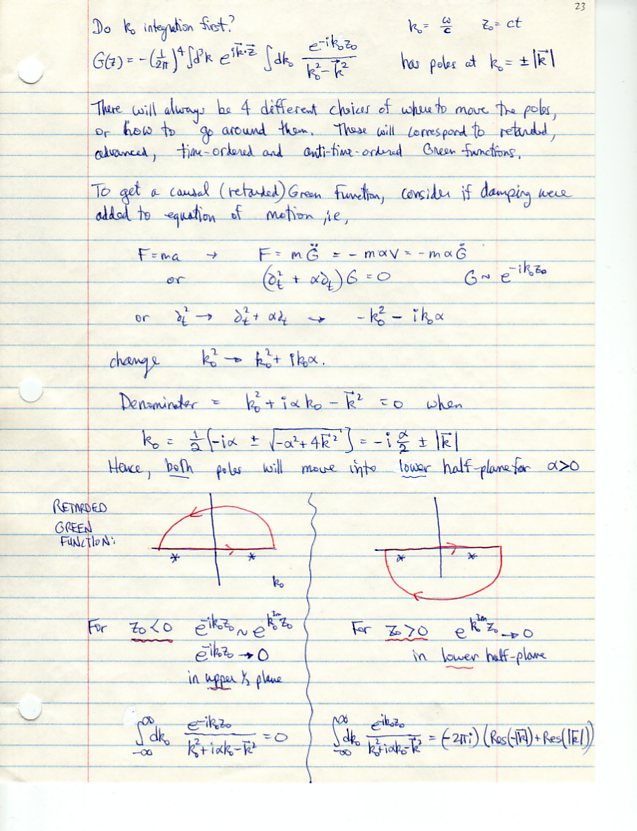 23
Do k₀ integration first? k₀ = ω/c z₀ = ct
G(z) = -(1/2π)⁴ ∫d³k e^{i\vec{k}·\vec{z}} ∫dk₀ e^{-ik₀z₀}/(k₀² - \vec{k}²) has poles at k₀ = ±|\vec{k}|
There will always be 4 different choices of where to move the poles,
or how to go around them. These will correspond to retarded,
advanced, time-ordered and anti-time-ordered Green functions.
To get a causal (retarded) Green Function, consider if damping were
added to equation of motion, ie,
F = ma → F = mG̈ = -mαv = -mαĠ
or (∂ₜ² + α∂ₜ)G = 0 G ~ e^{-ik₀z₀}
or ∂ₜ² → ∂ₜ² + α∂ₜ → -k₀² - ik₀α
change k₀² → k₀² + ik₀α.
Denominator = k₀² + iαk₀ - \vec{k}² = 0 when
k₀ = ½{-iα ± √(-α² + 4\vec{k}²)} = -iα/2 ± |\vec{k}|
Hence, both poles will move into lower half-plane for α>0
RETARDED
GREEN
FUNCTION:
k₀
For z₀<0 e^{-ik₀z₀} ~ e^{k₀^{Im}z₀}
e^{-ik₀z₀} → 0
in upper ½ plane
∫_{-∞}^{∞} dk₀ e^{-ik₀z₀}/(k₀² + iαk₀ - \vec{k}²) = 0
For z₀>0 e^{k₀^{Im}z₀} → 0
in lower half-plane
∫_{-∞}^{∞} dk₀ e^{-ik₀z₀}/(k₀² + iαk₀ - \vec{k}²) = (-2πi)(Res(-|\vec{k}|) + Res(|\vec{k}|))